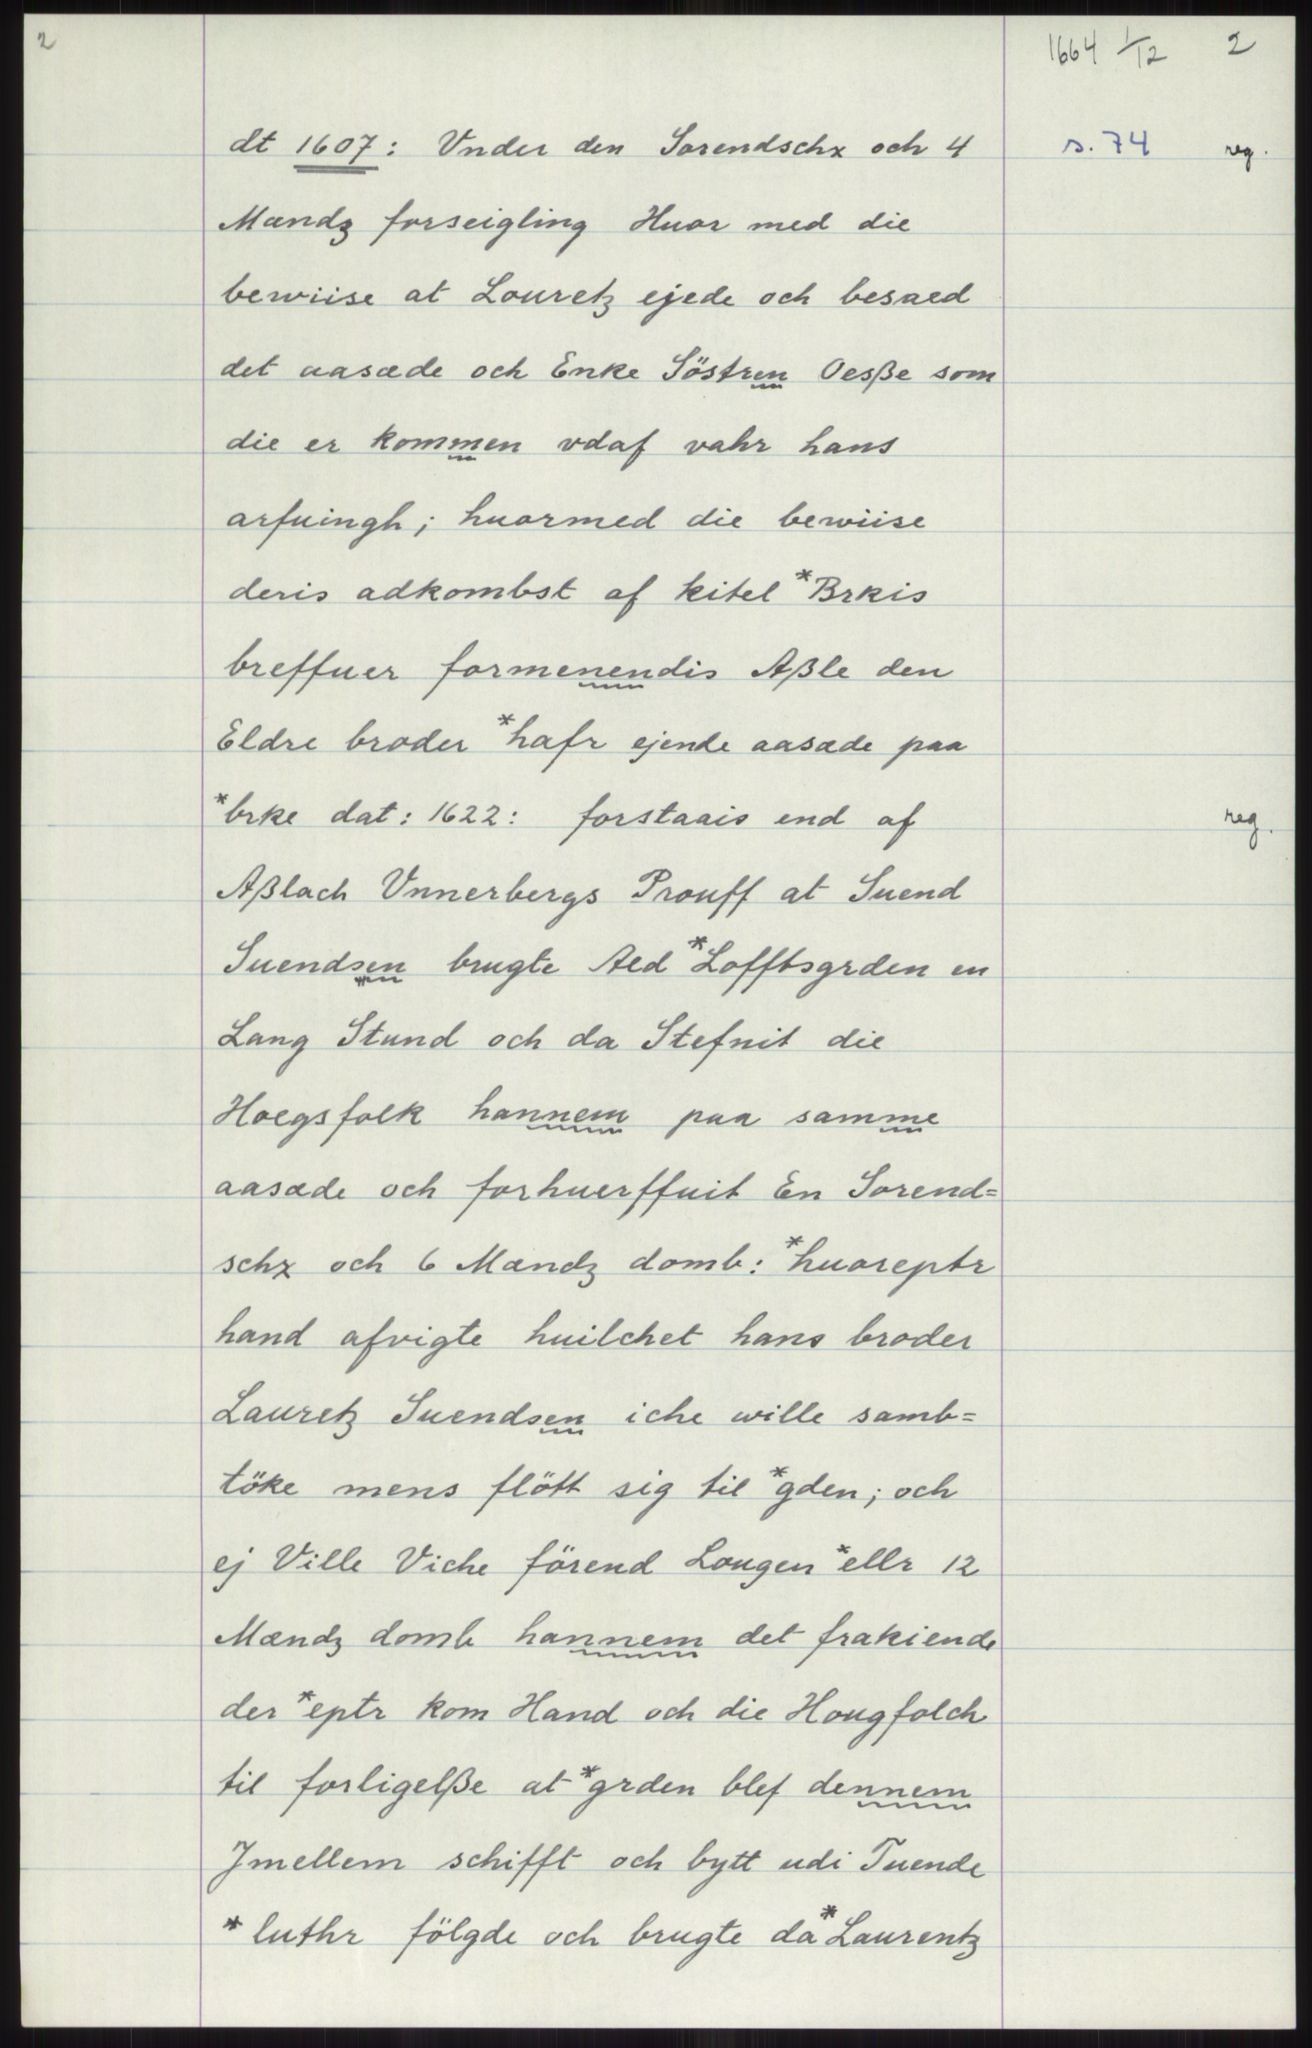 2
1664 1/12 2
dt 1607: Vnder den Sorendschz och 4 s. 74 reg.
Mændz forseigling Huor med die
bewiise at Louretz ejede och besaed
det aasæde och Enke Söstren Oesße som
die er kommen vdaf vahr hans
arfuingh; huormed die bewiise
deris adkombst af kitel *Brkis
breffuer formenendis Aßle den
Eldre broder *hafr ejende aasæde paa
*brke dat: 1622: forstaais end af reg.
Aßlach Vnnerbergs Prouff at Suend
Suendsen brugte Aed *Lofftsgrden en
Lang Stund och da Stefnit die
Hoegsfolk hannem paa samme
aasæde och forhuerffuit En Sorend=
schz och 6 Mændz domb: *huoreptr
hand afvigte huilchet hans broder
Lauretz Suendsen iche wille samb=
töke mens flött sig til *gden; och
ej Ville Viche förend Lougen *ellr 12
Mændz domb hannem det frakiende
der *eptr kom Hand och die Hougfolch
til forligelße at *grden blef dennem
Jmellem schifft och bytt udi Tuende
*luthr fölgde och brugte da *Laurentz